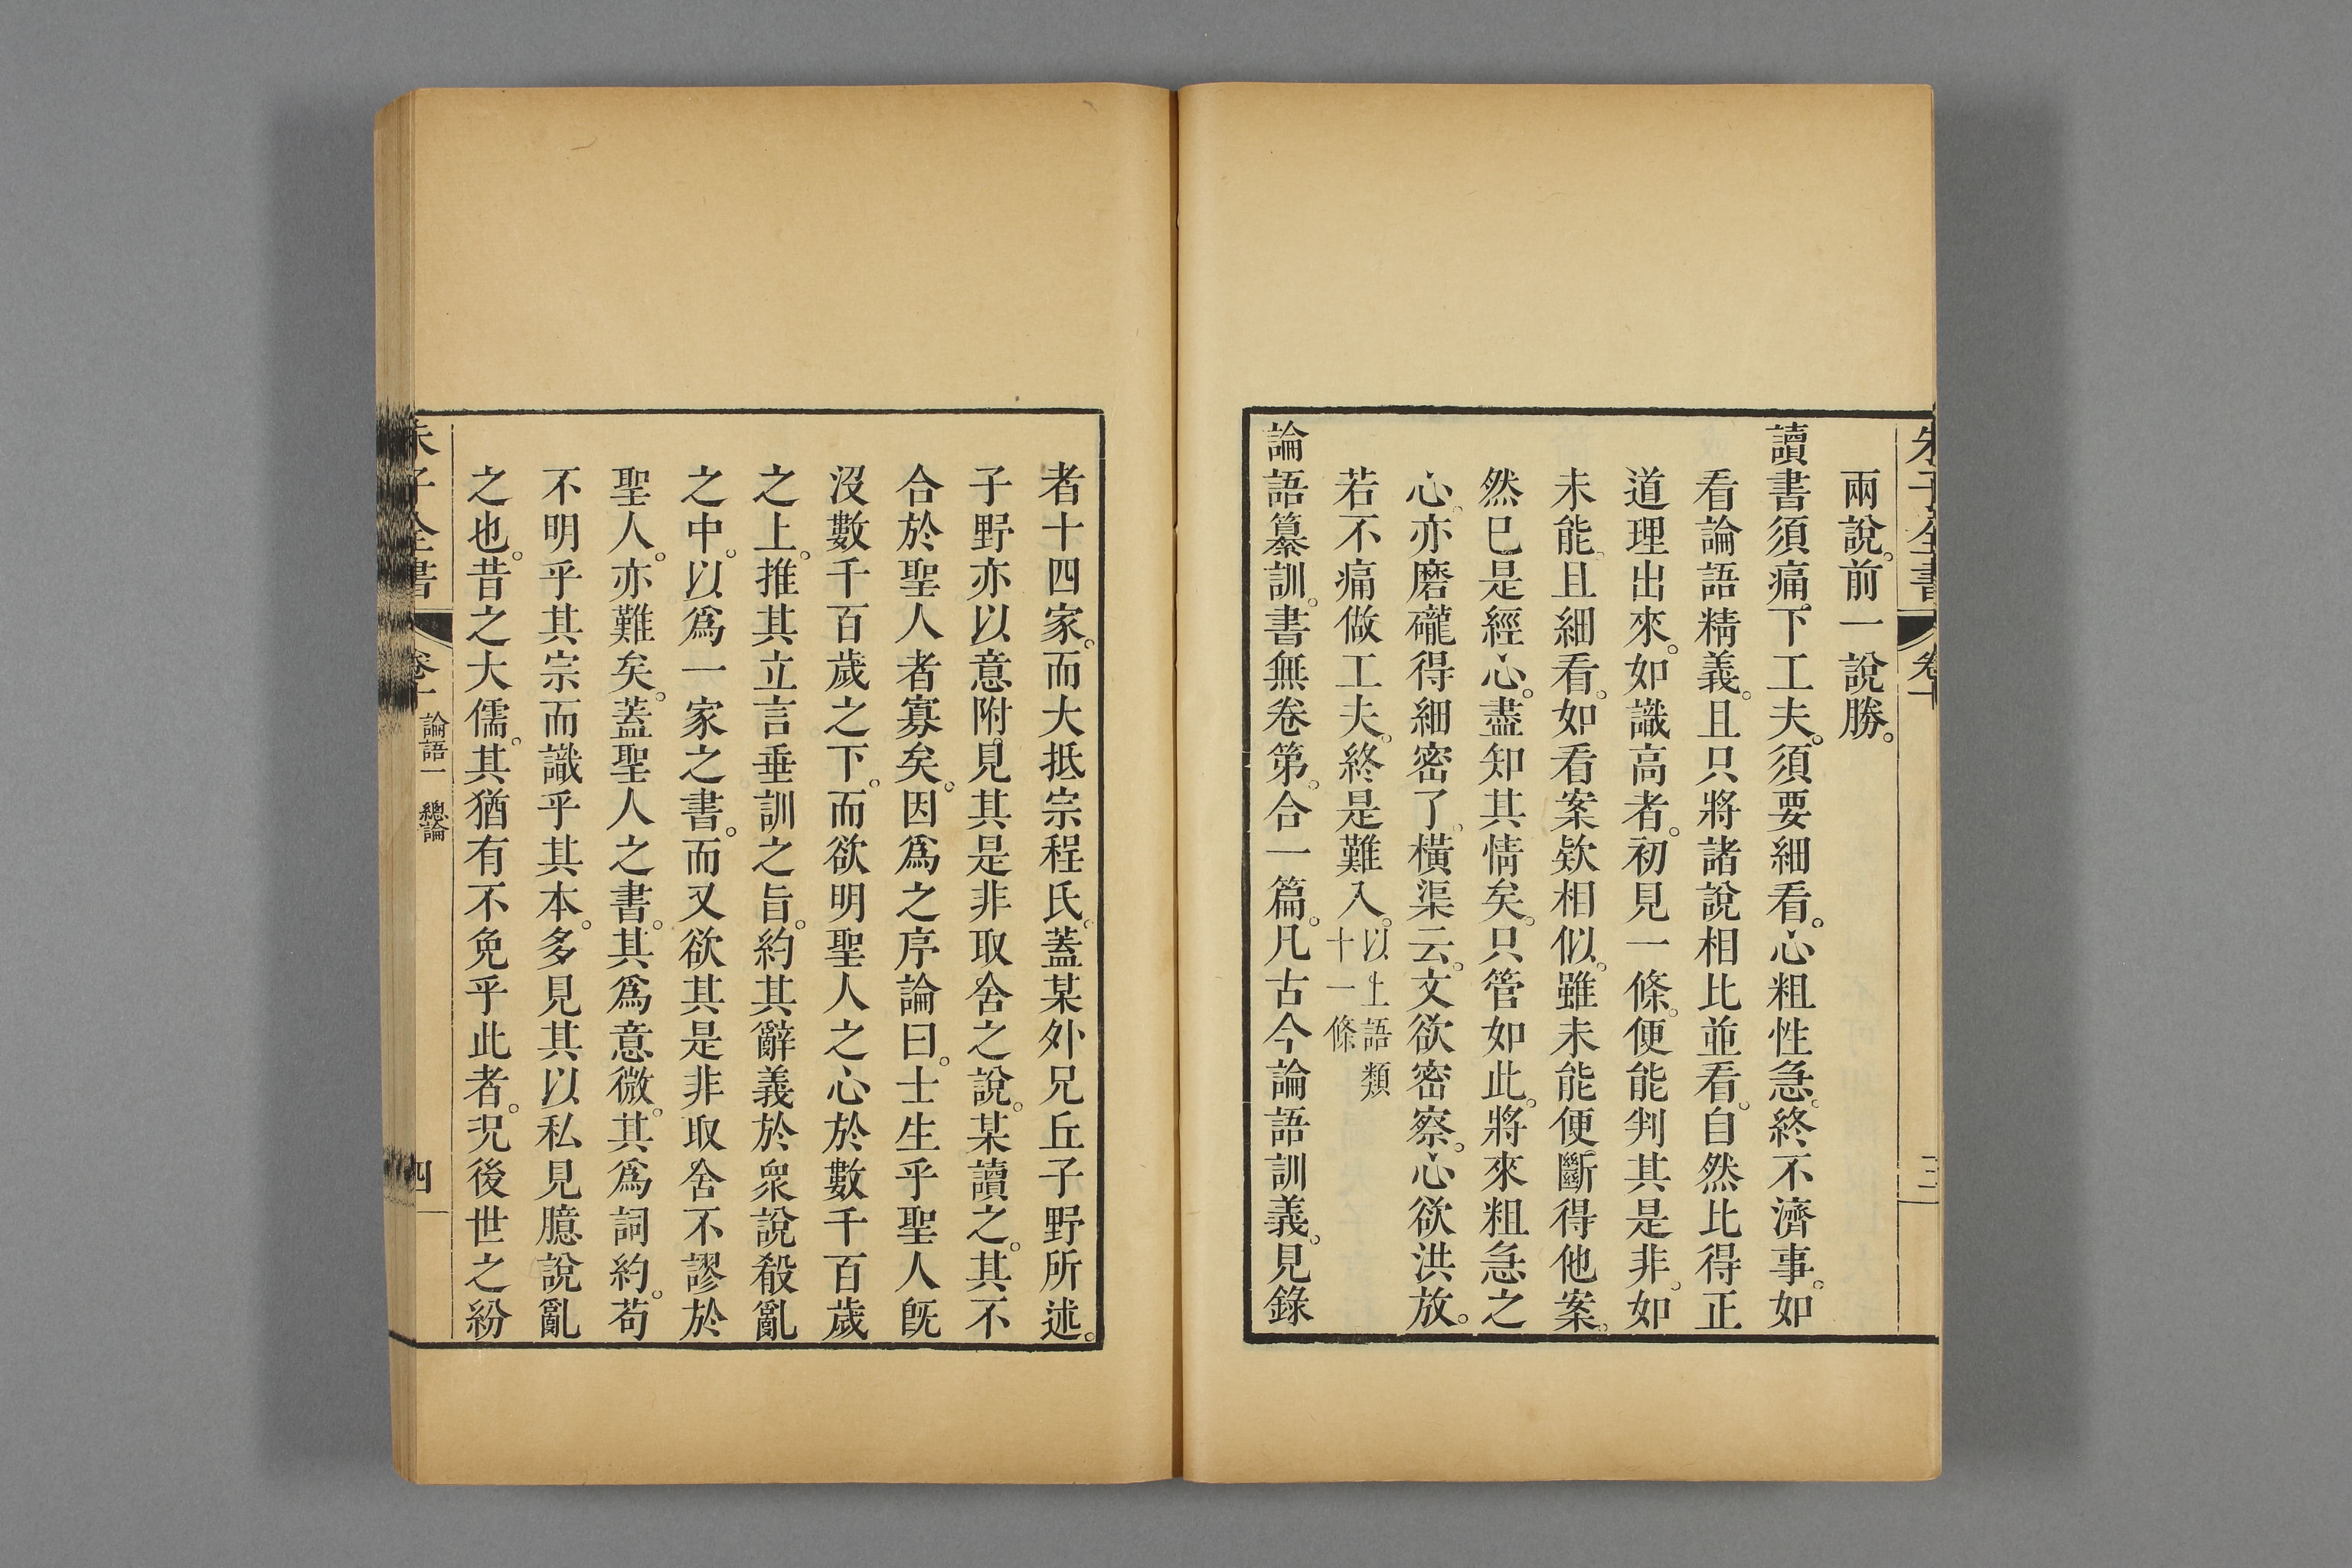 朱子全書 卷十 三
兩說。前一說勝。
讀書須痛下工夫。須要細看。心粗性急。終不濟事。如
看論語精義。且只將諸說相比並看。自然比得正
道理出來。如識高者。初見一條。便能判其是非。如
未能。且細看。如看案欵相似。雖未能便斷得他案。
然已是經心。盡知其情矣。只管如此。將來粗急之
心。亦磨礲得細密了。橫渠云。文欲密察。心欲洪放。
若不痛做工夫。終是難入。以上語類十一條
論語纂訓。書無卷第。合一篇。凡古今論語訓義。見錄
者十四家。而大抵宗程氏。蓋某外兄丘子野所述。
子野亦以意附見其是非取舍之說。某讀之。其不
合於聖人者寡矣。因爲之序論曰。士生乎聖人旣
沒數千百歲之下。而欲明聖人之心於數千百歲
之上。推其立言垂訓之旨。約其辭義於衆說殽亂
之中。以爲一家之書。而又欲其是非取舍不謬於
聖人。亦難矣。蓋聖人之書。其爲意微。其爲詞約。苟
不明乎其宗而識乎其本。多見其以私見臆說亂
之也。昔之大儒。其猶有不免乎此者。況後世之紛
朱子全書 卷十 論語一 總論 四